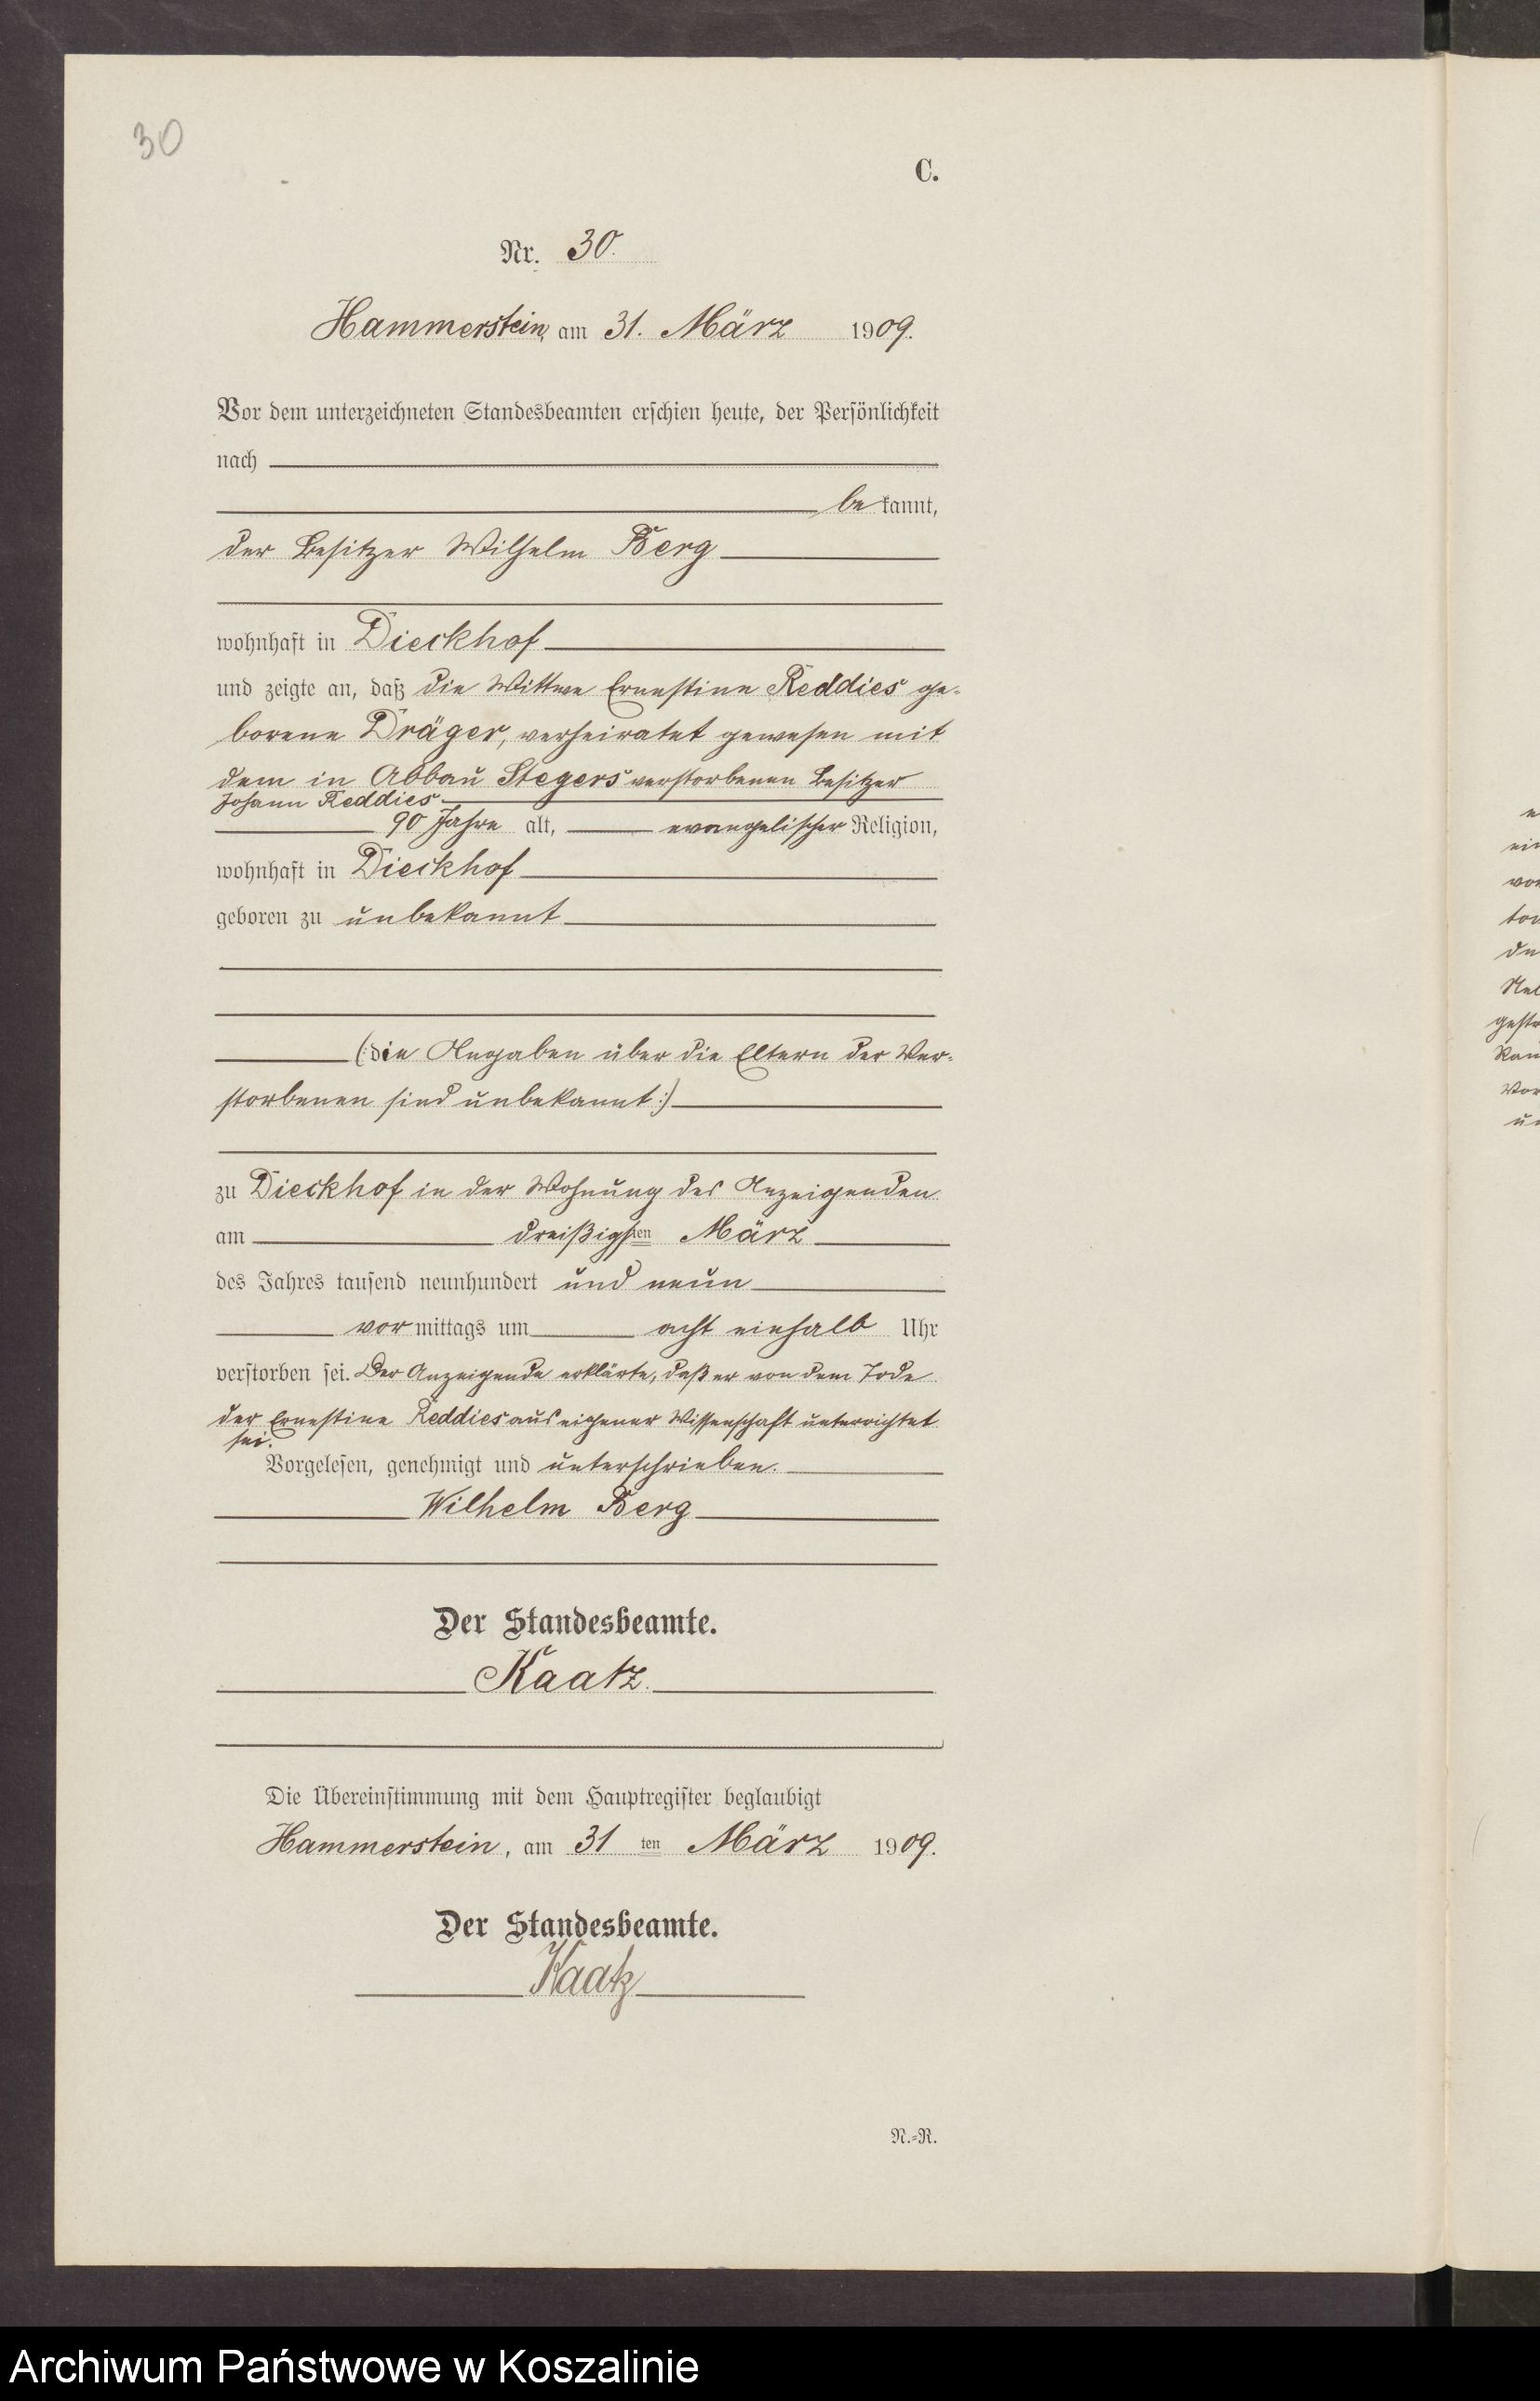 30
C.
Nr. 30.
Hammerstein, am 31. März 1909.
Vor dem unterzeichneten Standesbeamten erschien heute, der Persönlichkeit
nach
bekannt,
der Besitzer Wilhelm Berg
wohnhaft in Dieckhof
und zeigte an, daß die Wittwe Ernestine Reddies ge-
borene Dräger, verheiratet gewesen mit
dem in Abbau Stegers verstorbenen Besitzer
Johann Reddies
90 Jahre alt, evangelischer Religion,
wohnhaft in Dieckhof
geboren zu unbekannt
(:die Angaben über die Eltern der Ver-
storbenen sind unbekannt:)
zu Dieckhof in der Wohnung des Anzeigenden
am dreißigsten März
des Jahres tausend neunhundert und neun
vormittags um acht einhalb Uhr
verstorben sei. Der Anzeigende erklärte, daß er von dem Tode
der Ernestine Reddies aus eigener Wissenschaft unterrichtet
sei.
Vorgelesen, genehmigt und unterschrieben.
Wilhelm Berg
Der Standesbeamte.
Kaatz.
Die Übereinstimmung mit dem Hauptregister beglaubigt
Hammerstein, am 31 ten März 1909.
Der Standesbeamte.
Kaatz
N.-R.
Archiwum Państwowe w Koszalinie